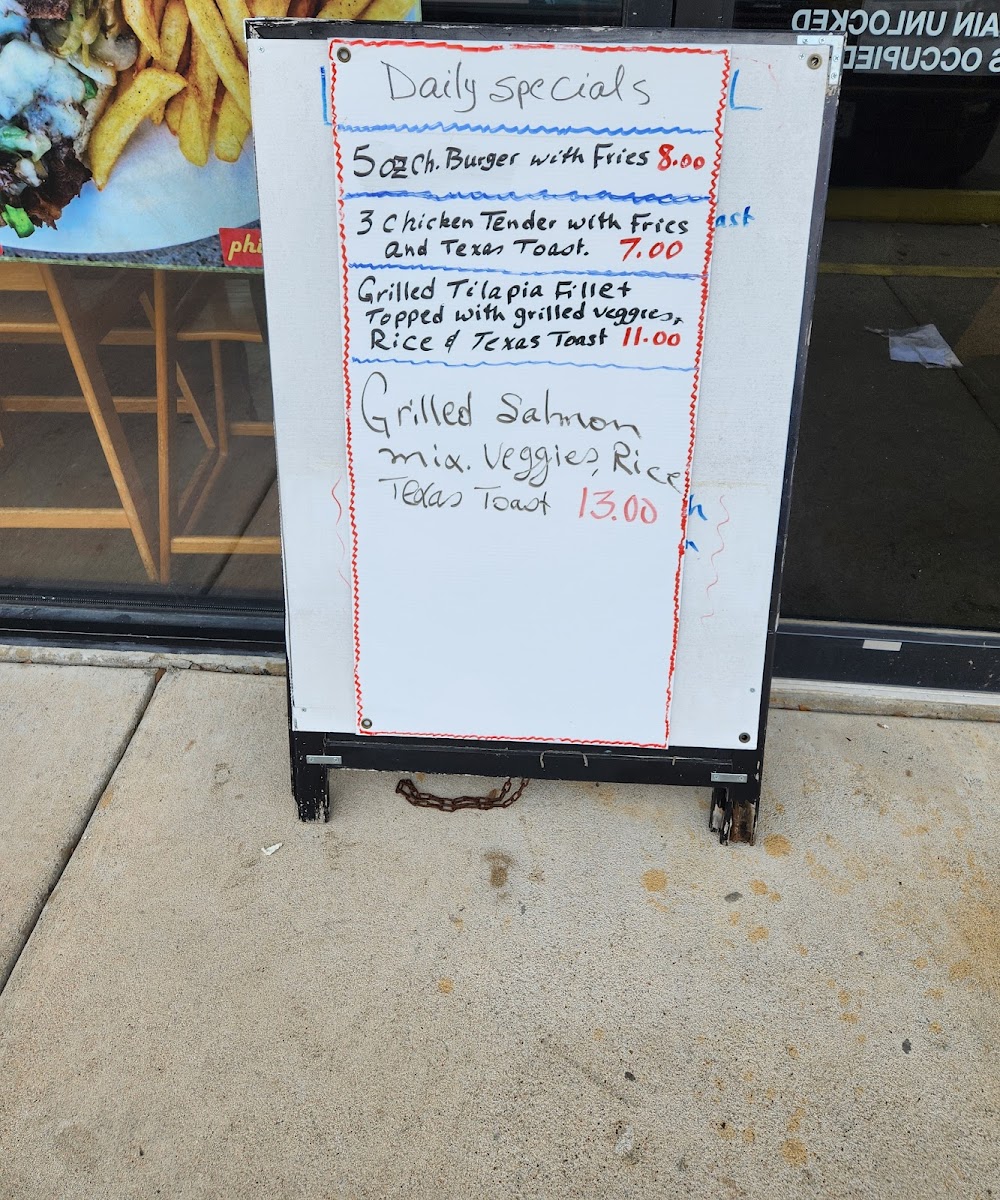 AIN UNLOCKED
S OCCUPIED
Daily specials
5 oz Ch. Burger with Fries 8.00
3 Chicken Tender with Fries
and Texas Toast. 7.00
Grilled Tilapia Fillet
Topped with grilled veggies,
Rice & Texas Toast 11.00
Grilled Salmon
mix. Veggies, Rice
Texas Toast 13.00
L
ast
h
phi